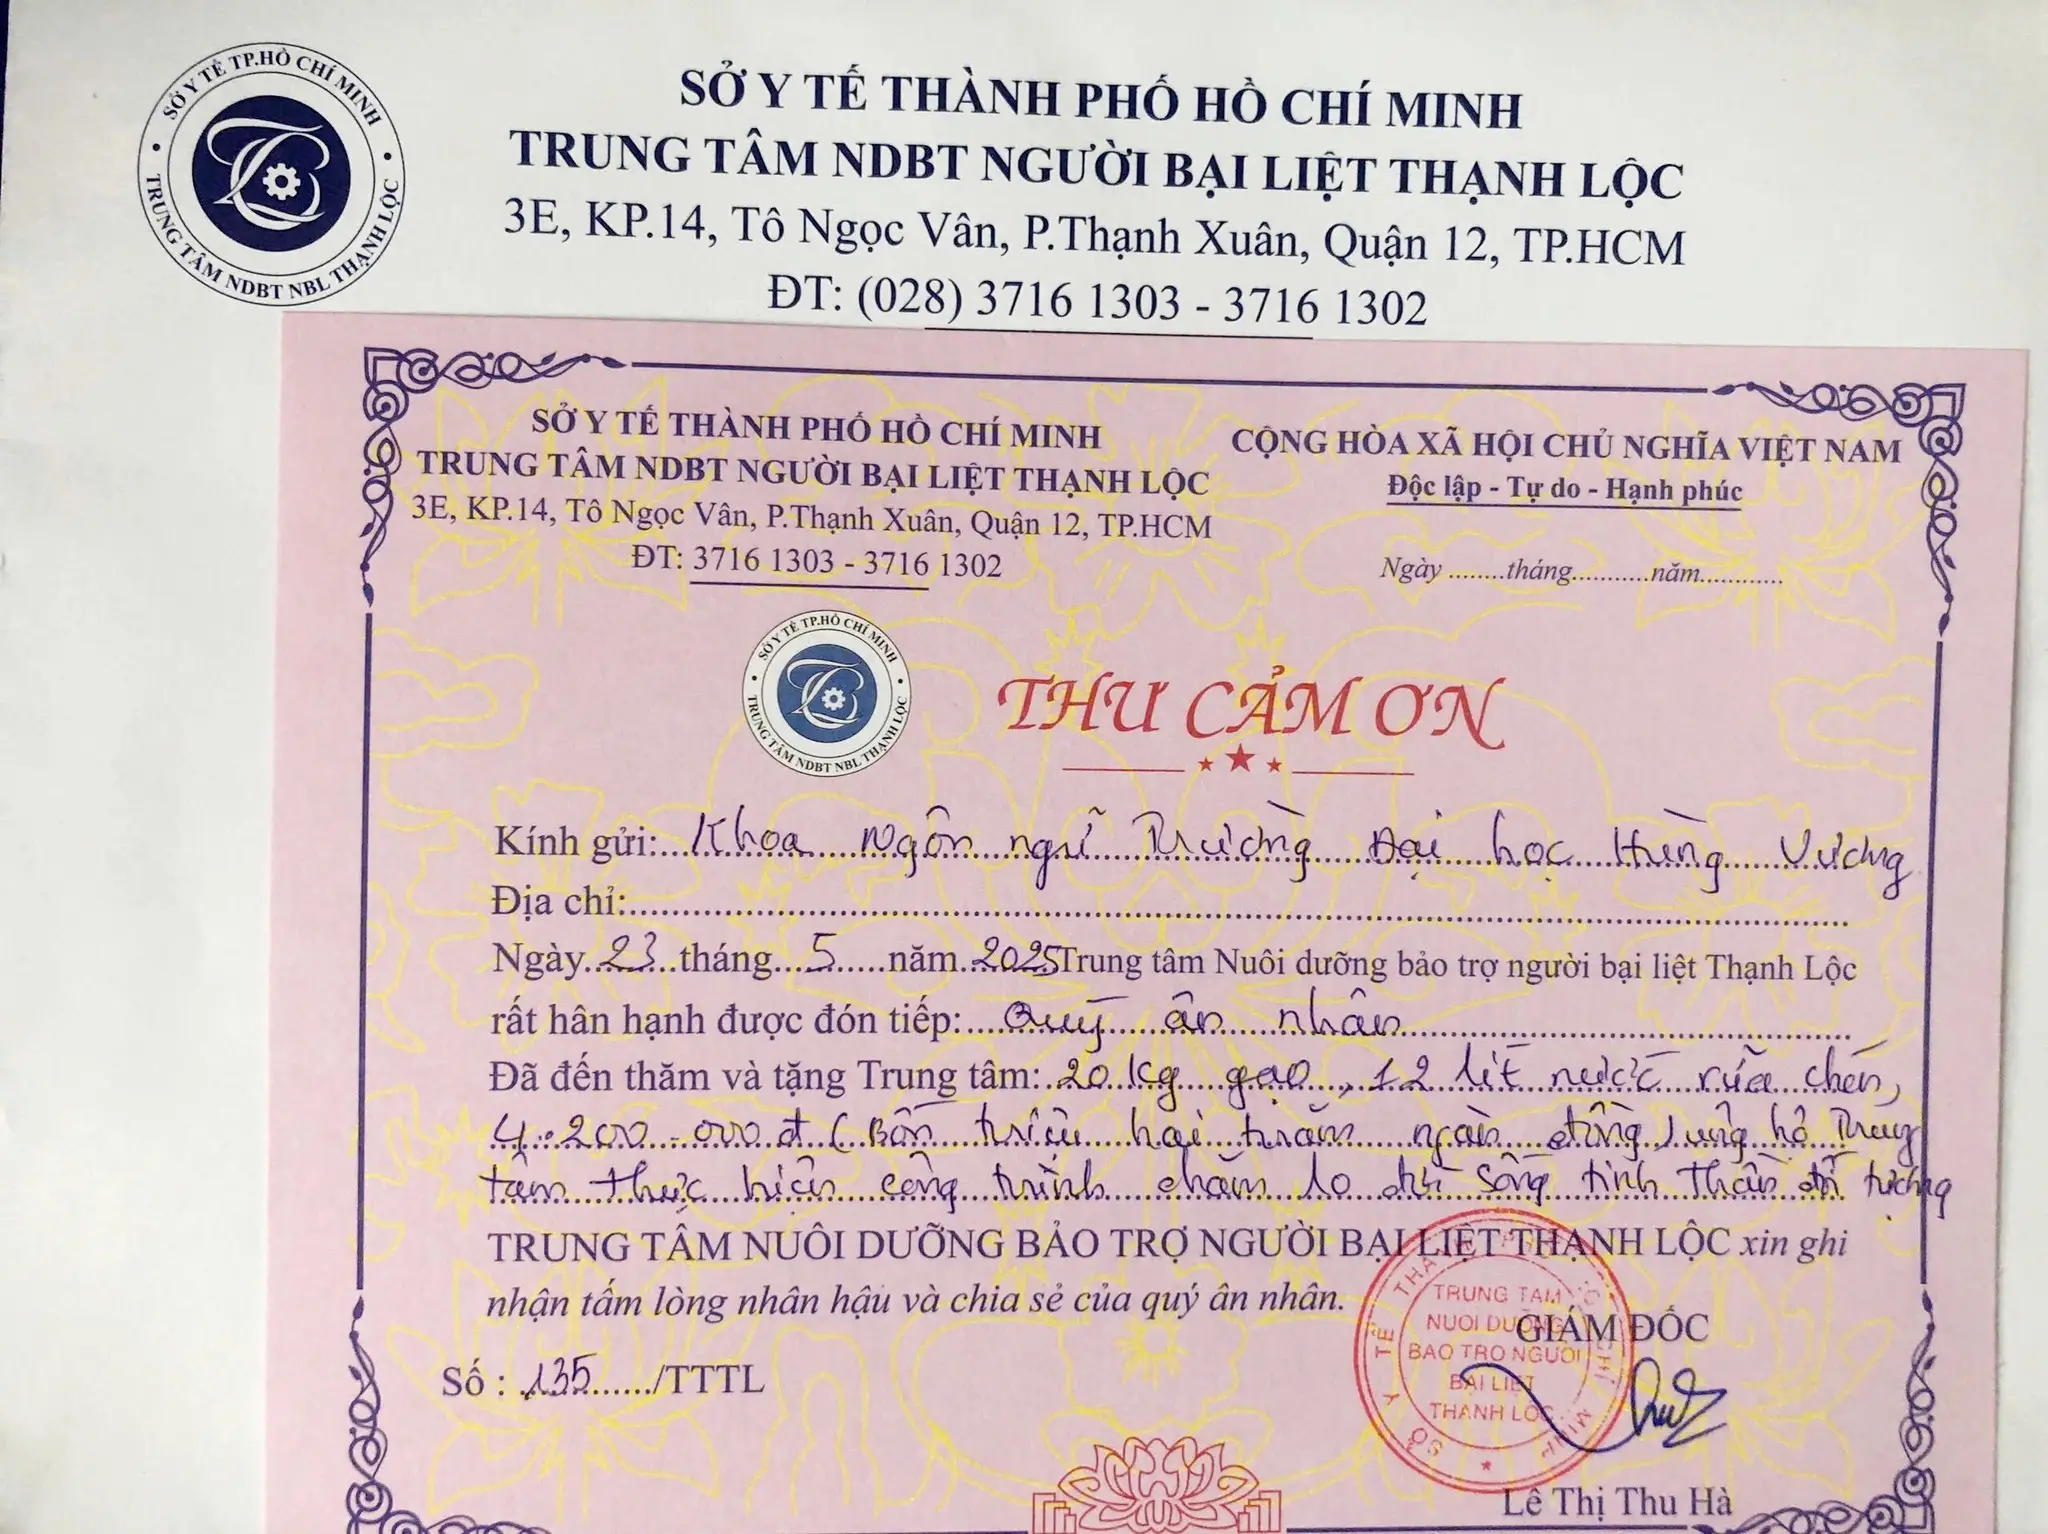 SỞ Y TẾ TP.HỒ CHÍ MINH
TRUNG TÂM NDBT NBL THẠNH LỘC
SỞ Y TẾ THÀNH PHỐ HỒ CHÍ MINH
TRUNG TÂM NDBT NGƯỜI BẠI LIỆT THẠNH LỘC
3E, KP.14, Tô Ngọc Vân, P.Thạnh Xuân, Quận 12, TP.HCM
ĐT: (028) 3716 1303 - 3716 1302
SỞ Y TẾ THÀNH PHỐ HỒ CHÍ MINH
TRUNG TÂM NDBT NGƯỜI BẠI LIỆT THẠNH LỘC
3E, KP.14, Tô Ngọc Vân, P.Thạnh Xuân, Quận 12, TP.HCM
ĐT: 3716 1303 - 3716 1302
CỘNG HÒA XÃ HỘI CHỦ NGHĨA VIỆT NAM
Độc lập - Tự do - Hạnh phúc
Ngày ........tháng...........năm............
SỞ Y TẾ TP.HỒ CHÍ MINH
TRUNG TÂM NDBT NBL THẠNH LỘC
THƯ CẢM ƠN
Kính gửi: Khoa Ngôn ngữ Trường Đại học Hùng Vương
Địa chỉ:
Ngày 23 tháng 5 năm 2025 Trung tâm Nuôi dưỡng bảo trợ người bại liệt Thạnh Lộc
rất hân hạnh được đón tiếp: Quý ân nhân
Đã đến thăm và tặng Trung tâm: 20 kg gạo, 12 lít nước rửa chén,
4.200.000đ (Bốn triệu hai trăm ngàn đồng) ủng hộ Trung
tâm thực hiện công trình chăm lo đời sống tinh thần đối tượng
TRUNG TÂM NUÔI DƯỠNG BẢO TRỢ NGƯỜI BẠI LIỆT THẠNH LỘC xin ghi
nhận tấm lòng nhân hậu và chia sẻ của quý ân nhân.
GIÁM ĐỐC
Số : 135/TTTL
SỞ Y TẾ THÀNH PHỐ HỒ CHÍ MINH
TRUNG TÂM
NUÔI DƯỠNG
BẢO TRỢ NGƯỜI
BẠI LIỆT
THẠNH LỘC
Lê Thị Thu Hà